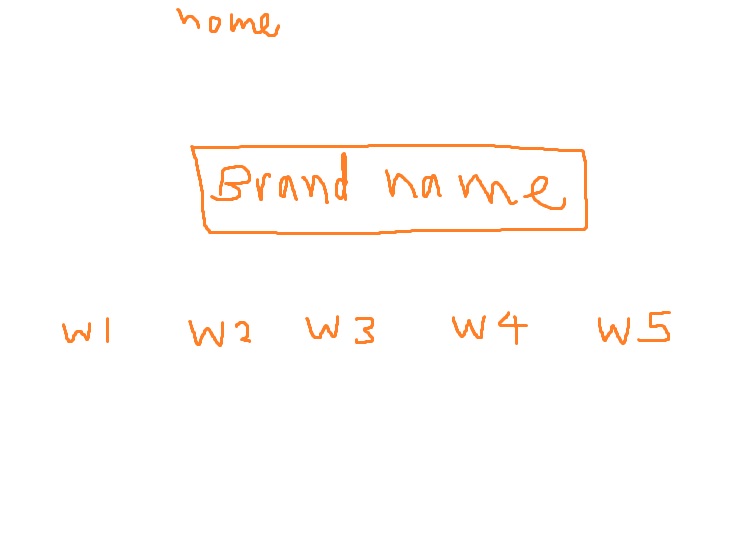 home
Brand name
W1 W2 W3 W4 W5